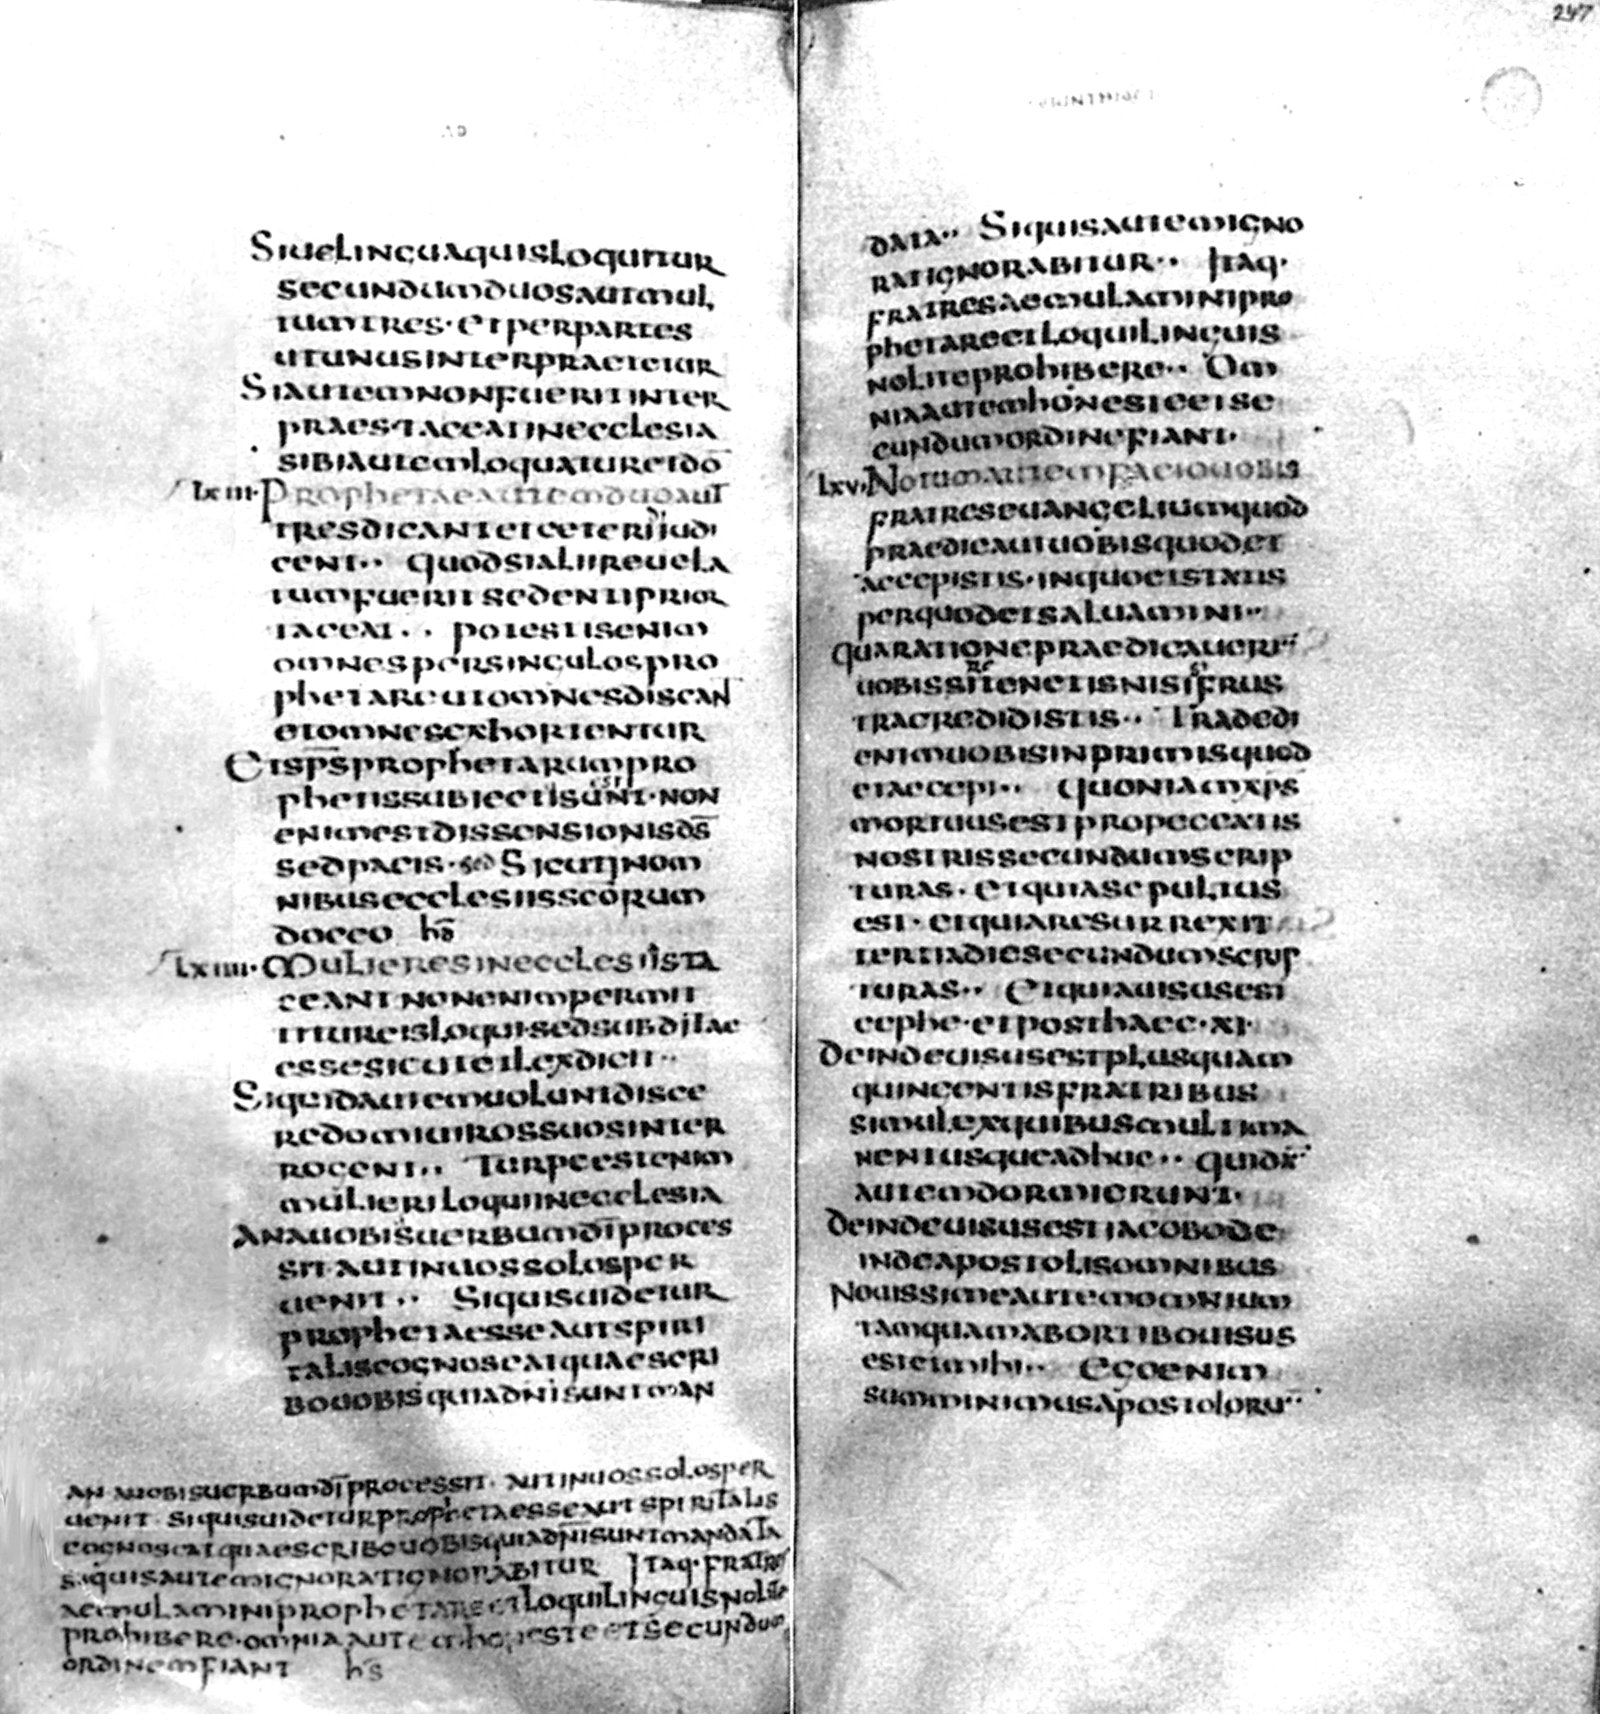 247
Siue lingua quis loquitur
secundum duos aut mul
tum tres · et per partes
ut unus interpraetetur
Si autem non fuerit inter
praes · taceat in ecclesia
sibi autem loquatur et dō
lxiii · Prophetae autem duo aut
tres dicant et ceteri diiudi
cent ·· quod si alii reuela
tum fuerit sedenti prior
taceat ·· potestis enim
omnes per singulos pro
phetare ut omnes discant
et omnes exhortentur
Et sp̄s prophetarum pro
phetis subiectisunt · non
enim est dissensionis d̄s
sed pacis · Sicut in om
nibus ecclesiis scōrum
doceo hō
lxiiii · Mulieres in ecclesiis ta
ceant non enim permit
titur eis loqui · sed subditae
esse sicut et lex dicit ··
Si quid autem uolunt disce
re domi uiros suos inter
rogent ·· Turpe est enim
mulieri loqui in ecclesia
An a uobis uerbum dī proces
sit · aut in uos solos per
uenit ·· Si quis uidetur
propheta esse aut spiri
talis cognoscat quae scri
bo uobis quia dn̄i sunt man
An a uobis uerbum dī processit · aut in uos solos per
uenit · si quis uidetur propheta esse aut spiritalis
cognoscat quae scribo uobis quia dn̄i sunt mandata
si quis autem ignorat ignorabitur Itaq · fratres
aemulamini prophetare et loqui linguis nolite
prohibere · omnia autem honeste et secundum
ordinem fiant hs
data ·· Si quis autem igno
rat ignorabitur ·· Itaq ·
fratres aemulamini pro
phetare et loqui linguis
nolite prohibere ·· Om
nia autem honeste et se
cundum ordine fiant ·
lxv · Notum autem facio uobis
fratres euangelium quod
praedicaui uobis quod et
accepistis · in quo et statis
per quod et saluamini ··
qua ratione praedicauerim
uobis si tenetis nisi frus
tra credidistis ·· Tradedi
enim uobis in primis quod
et accepi ·· Quoniam xp̄s
mortuus est pro peccatis
nostris secundum scrip
turas · et quia sepultus
est · et quia resurrexit
tertia die secundum scrip
turas ·· Et quia uisus est
cephe · et post haec · xi ·
Deinde uisus est plus quam
quingentis fratribus
simul ex quibus multi ma
nent usque adhuc ·· quidā
autem dormierunt ·
Deinde uisus est iacobo de
inde apostolis omnibus
Nouissime autem omnium
tamquam abortibo uisus
est et mihi ·· Ego enim
sum minimus apostolorū ··